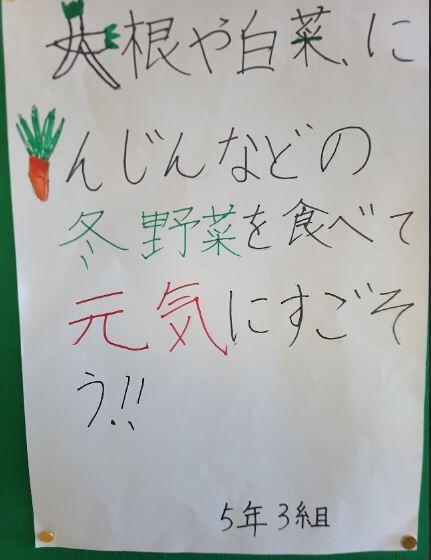 大根や白菜、に
んじんなどの
冬野菜を食べて
元気にすごそ
う!!
5年3組